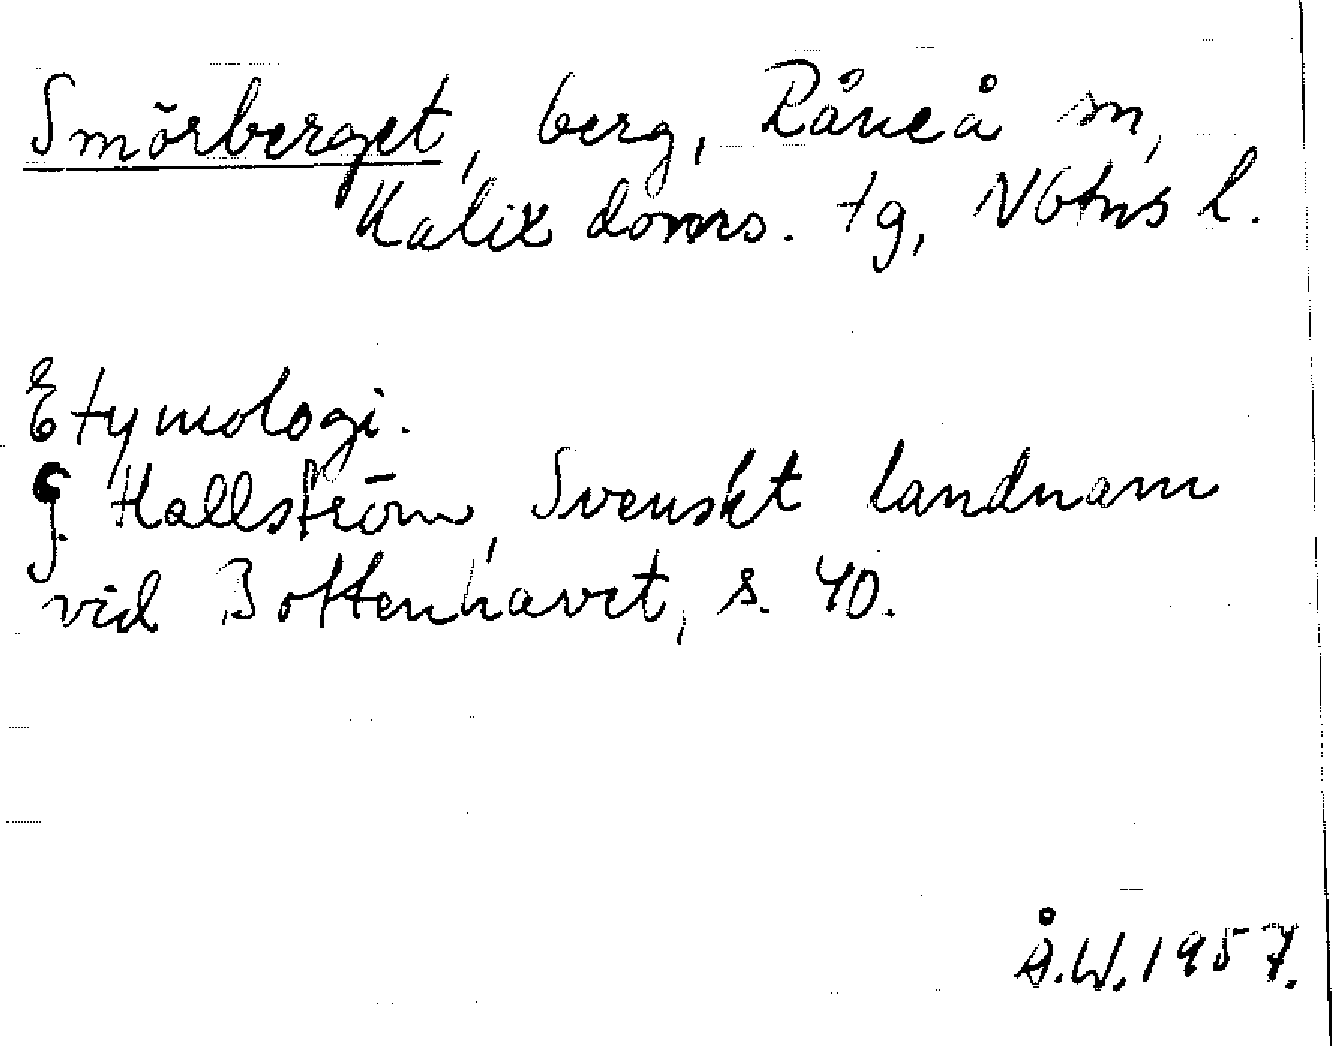 Smörberget, berg, Råneå sn,
Kalix doms. tg, Nbtns l.
Etymologi.
G. Hallström, Svenskt landnam
vid Bottenhavet, s. 40.
Å.W. 1957.